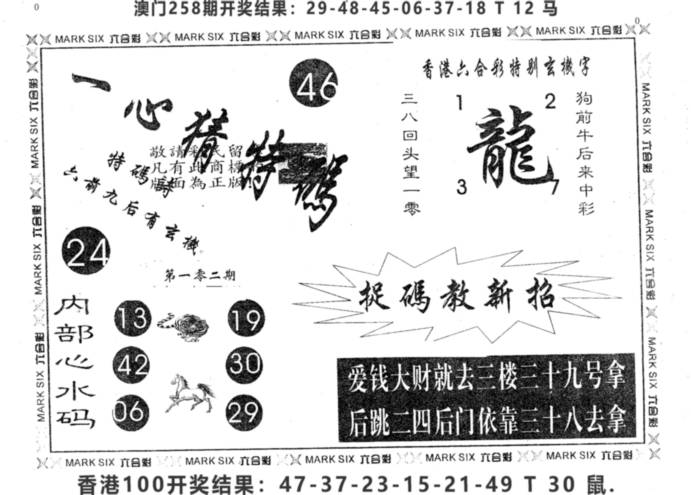 澳门258期开奖结果：29-48-45-06-37-18 T 12 马
0
0
MARK SIX 六合彩 MARK SIX 六合彩 MARK SIX 六合彩 MARK SIX 六合彩 MARK SIX 六合彩
MARK SIX 六合彩
MARK SIX 六合彩
MARK SIX 六合彩
MARK SIX 六合彩
MARK SIX 六合彩
MARK SIX 六合彩
一心猜特碼
46
敬請彩民留
凡有此商標
版面為正版!
特碼詩
六前九后有玄機
24
第一零二期
内部心水码
13
19
42
30
06
29
香港六合彩特别玄機字
三八回头望一零
1
2
龍
3
7
狗前牛后来中彩
捉碼教新招
爱钱大财就去三楼三十九号拿
后跳二四后门依靠三十八去拿
MARK SIX 六合彩 MARK SIX 六合彩 MARK SIX 六合彩 MARK SIX 六合彩 MARK SIX 六合彩
香港100开奖结果：47-37-23-15-21-49 T 30 鼠.